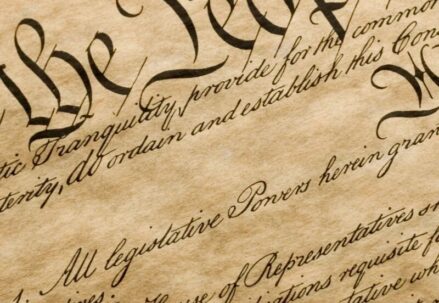 the Peop
tic Tranquility, provide for the common
terity, do ordain and establish this Con
All legislative Powers herein gran
se of Representatives s
ations requisite f